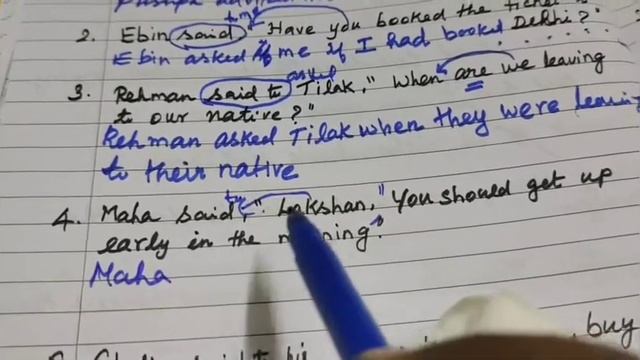 to me
2. Ebin said "Have you booked the ticket
Ebin asked me if I had booked Delhi?"
asked
3. Rehman said to Tilak, "When are we leaving
to our native?"
Rehman asked Tilak when they were leaving
to their native
to
4. Maha said, "Lakshan, "You should get up
early in the morning."
Maha
buy